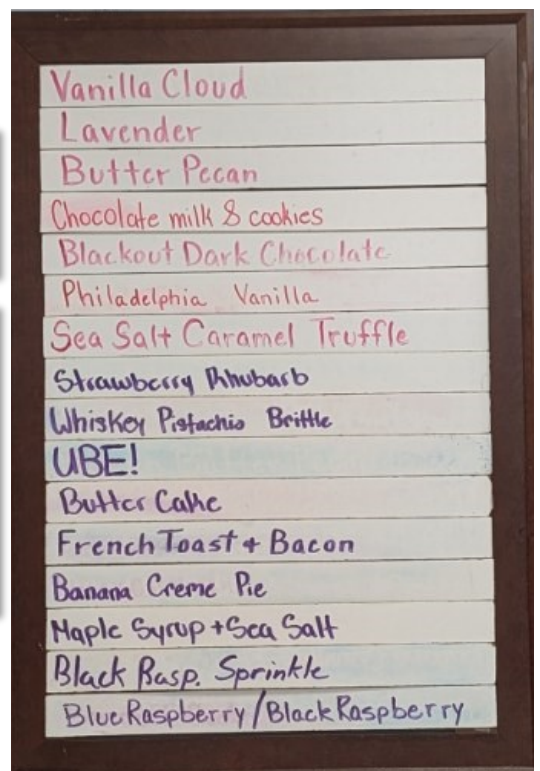 Vanilla Cloud
Lavender
Butter Pecan
Chocolate milk & cookies
Blackout Dark Chocolate
Philadelphia Vanilla
Sea Salt Caramel Truffle
Strawberry Rhubarb
Whiskey Pistachio Brittle
UBE!
Butter Cake
French Toast + Bacon
Banana Creme Pie
Maple Syrup + Sea Salt
Black Rasp. Sprinkle
Blue Raspberry/Black Raspberry